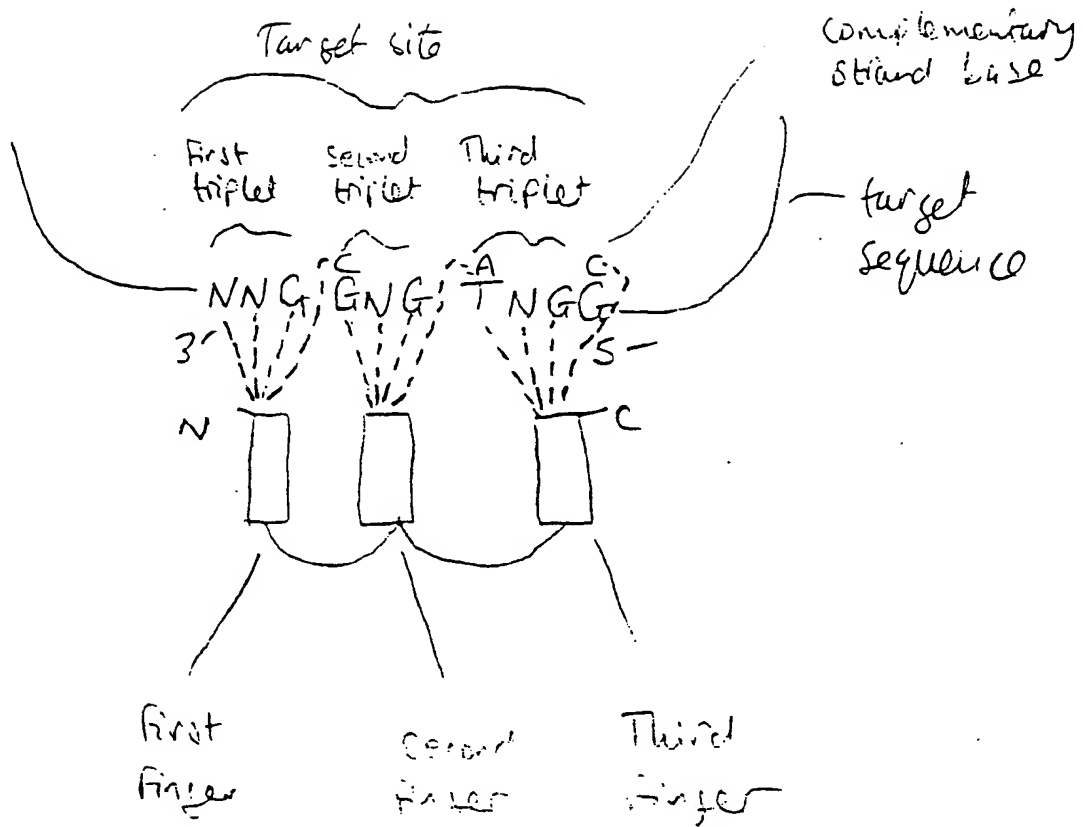 Target site
complementary
strand base
First
triplet
Second
triplet
Third
triplet
target
sequence
C A C
NNG GNG TNGG
3' 5-
N C
First
Finger
Second
Finger
Third
Finger